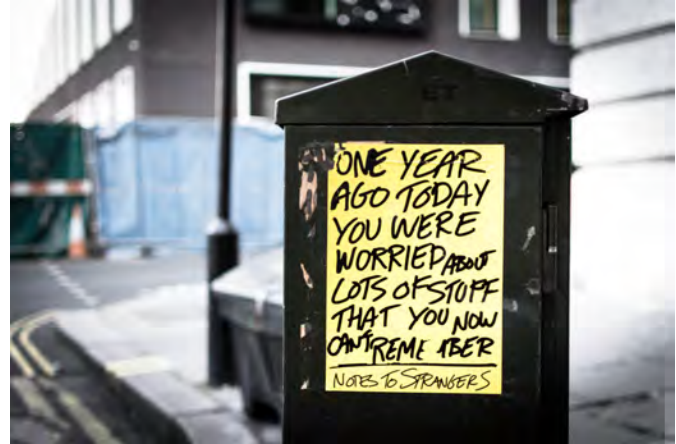 ONE YEAR
AGO TODAY
YOU WERE
WORRIED ABOUT
LOTS OF STUFF
THAT YOU NOW
CAN'T REMEMBER
NOTES TO STRANGERS